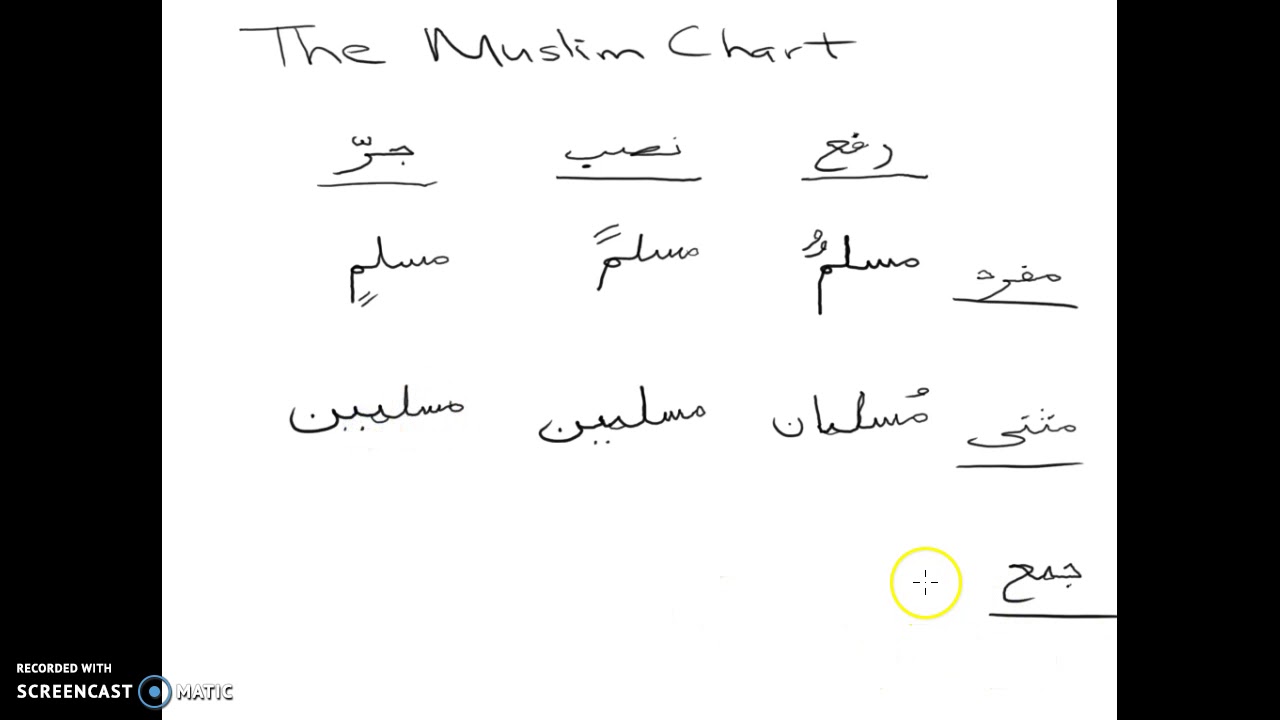 The Muslim Chart
رفع نصب جرّ
مفرد مسلمٌ مسلمً مسلمٍ
مثنى مُسلمان مسلمين مسلمين
جمع
RECORDED WITH
SCREENCAST MATIC